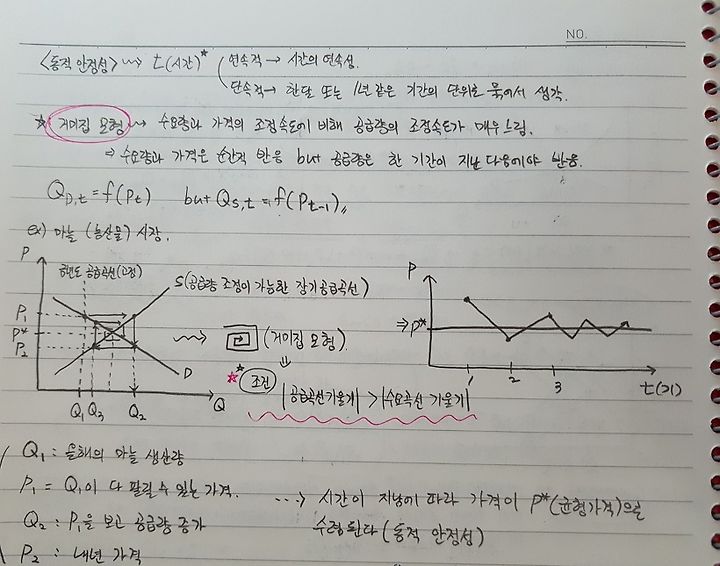 NO.
<동적 안정성> ⇝ t(시간)* ( 연속적 → 시간의 연속성.
단속적 → 한달 또는 1년같은 기간의 단위로 묶어서 생각.
* 거미집 모형 ⇝ 수요량과 가격의 조정속도에 비해 공급량의 조정속도가 매우 느림.
⇒ 수요량과 가격은 순간적 반응 but 공급량은 한 기간이 지난 다음에야 반응.
Q_D,t = f(Pt) but Q_S,t = f(Pt-1)〃
ex) 마늘 (농산물) 시장.
P
금년도 공급곡선(고정)
S(공급량 조정이 가능한 장기공급곡선)
P₁
P*
P₂
D
Q₁ Q₃ Q₂ Q
⇝ (거미집 모형).
⇓
* 조건 |공급곡선기울기| > |수요곡선 기울기|
P
⇒ P*
1 2 3 t(기)
Q₁ : 올해의 마늘 생산량
P₁ = Q₁이 다 팔릴 수 있는 가격.
Q₂ : P₁을 보고 공급량 증가
P₂ : 내년 가격
⋯> 시간이 지남에 따라 가격이 P*(균형가격)으로
수렴된다 (동적 안정성)